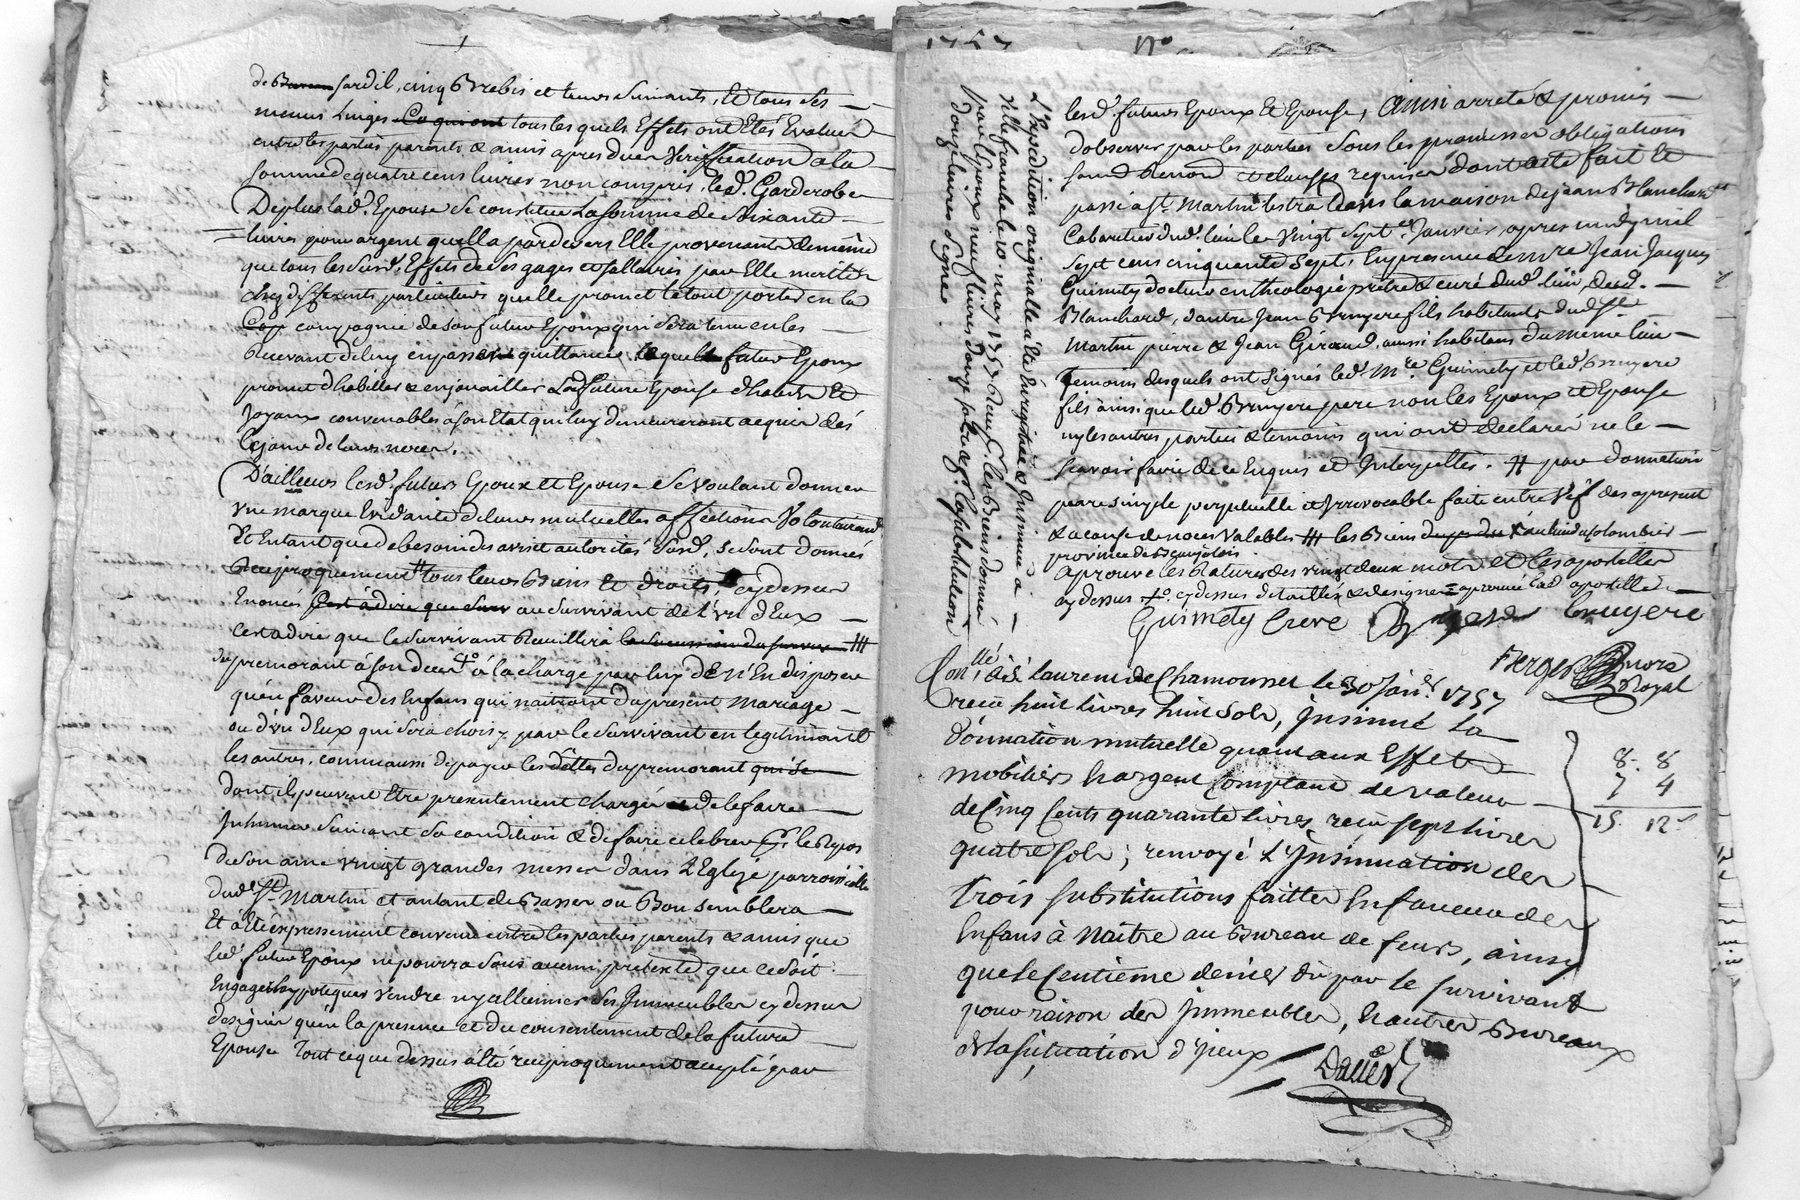 de fardil, cinq Brebis et leurs suivants, Et tous ses
menus Linges Ce qui ont tous lesquels Effets ont Etés Evalués
entre les parties parents & amis apres due Veriffication a la
somme de quatre cens livres non compris led. Garderobe
De plus lad. Epouse se constitue La somme de soixante
livres pour argent quell'a par devers Elle provenant de même
que tous les susd. Effets de ses gages et sallaires par Elle merités
chez differents particuliers quelle promet le tout porter en la
Cop compagnie de son futur Epoux qui sera tenu en les
Recevant de luy en passer quittance, lequel futur Epoux
promet d'habiller & enjouailler Lad. future Epouse d'habits Et
Joyaux convenables à son Etat qui luy demeureront acquis dés
le jour de leurs noces.
D'ailleurs lesd. futurs Epoux et Epouse se voulant donner
une marque Evidante de leurs mutuelles affections Volontairemt
Et Entant que de besoin des avis et autorités susd. se sont donnés
Reciproquement # tous leurs Biens et droits, cy dessus
Enoncés C'est à dire que au survivant de L'un d'Eux
c'est a dire que le survivant Recuillira la succession du #
du premorant à son deces à la charge par luy de n'En disposer
qu'en faveur des Enfans qui naitront du present Mariage
ou d'un d'Eux qui sera choisy par le survivant en legitimant
les autres, comm'aussi de payer les dettes du premorant qui se
dont ils peuvent Etre presentement chargés de le faire
Inhumer suivant sa condition & de faire celebrer pr. le Repos
de son ame vingt grandes messes dans L'Eglize parroissialle
dud. St. Martin et autant de Basses ou Bon semblera
Et a été expressement convenu entre les parties parents & amis que
led. futur Epoux ne pourra sous aucun pretexte que ce soit
Engager hyppotéquer vendre ny alliener des Immeubles cy dessus
designés qu'en la presence et du consentement de la future
Epouse Tout ce que dessus a été reciproquement accepté par
1757
no
lesd. futurs Epoux Et Epouse, Ainsi arreté & promis
d'observer par les parties sous les promesses obligations
renon et clauses requises dont acte fait Et
passé a St. Martin Lestra dans la maison de jean Blanchard
Cabaretier dud. lieu le Vingt Sept Janvier, apres midy mil
sept cens cinquante sept, En presence de mre Jean Jacques
Guimety docteur en theologie prêtre & curé dud. lieu, dud.
Blanchard, d'autre Jean Bruyere fils habitants dud. St
Martin pierre & Jean Giraud, aussi habitans du même lieu
temoins desquels ont signés led. Mre Guimety et led. Bruyere
fils ainsi que led. Bruyere pere non les Epoux et Epouse
ny les autres parties & temoins qui ont declarés ne le
scavoir faire de ce Enquis et Interpellés. # par donnation
pure simple perpetuelle et Irrevocable faite entre vifs des apresent
& a cause de noces Valables # les Biens du colombier
province de Beaujolois
aprouvé les Ratures des vingt deux mots et les apostilles
cy dessus cy dessus detaillés & designés = aprouvé lad. apostille
Guimety Curé Bruyere Bruyere
Berger Nore Royal
L'Expedition originalle a été Enregistrée & Insinuée à
Villefranche le 10 may 1757 Recu p. les Biens donnés
par l'Epoux neuf livres douze sols & pr. la substitution
douze livres Signé
Conllé, à St. Laurent de Chamousset le 30 Janer 1757
recu huit Livres huit Sols, Insinué la
donnation mutuelle quant aux Effets
mobiliers & argent Comptant de valeur
de Cinq Cents quarante livres recu sept livres
quatre sols ; renvoyé L'Insinuation des
trois substitutions faittes En faveur des
Enfans à naitre au Bureau de feurs, ainsy
que le Centieme denier dû par le survivant
pour raison des Immeubles, & autres Bureaux
de la situation d'jceux
Davier
8. 8
7 4
15. 12s